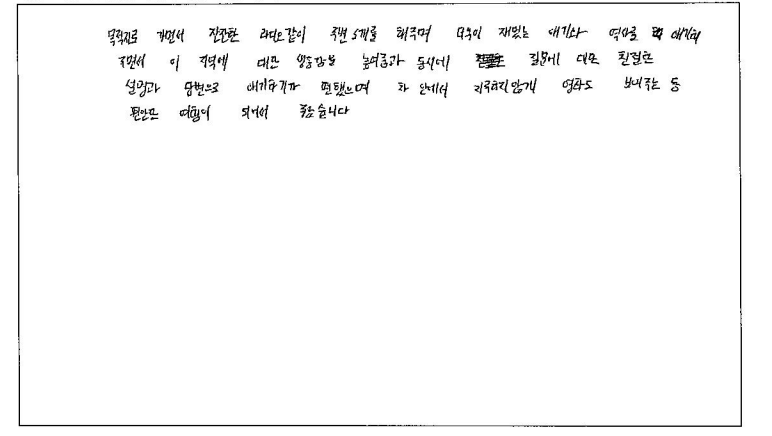 목적지로 가면서 잔잔한 라디오같이 주변 소개를 해주며 더욱이 재밌는 얘기와 역사를 얘기해
주면서 이 지역에 대한 생동감을 높여줌과 동시에 질문에 대한 친절한
설명과 답변으로 얘기하기가 편했으며 차 안에서 지루하지않게 영화도 보여주는 등
편안한 여행이 되어서 좋았습니다